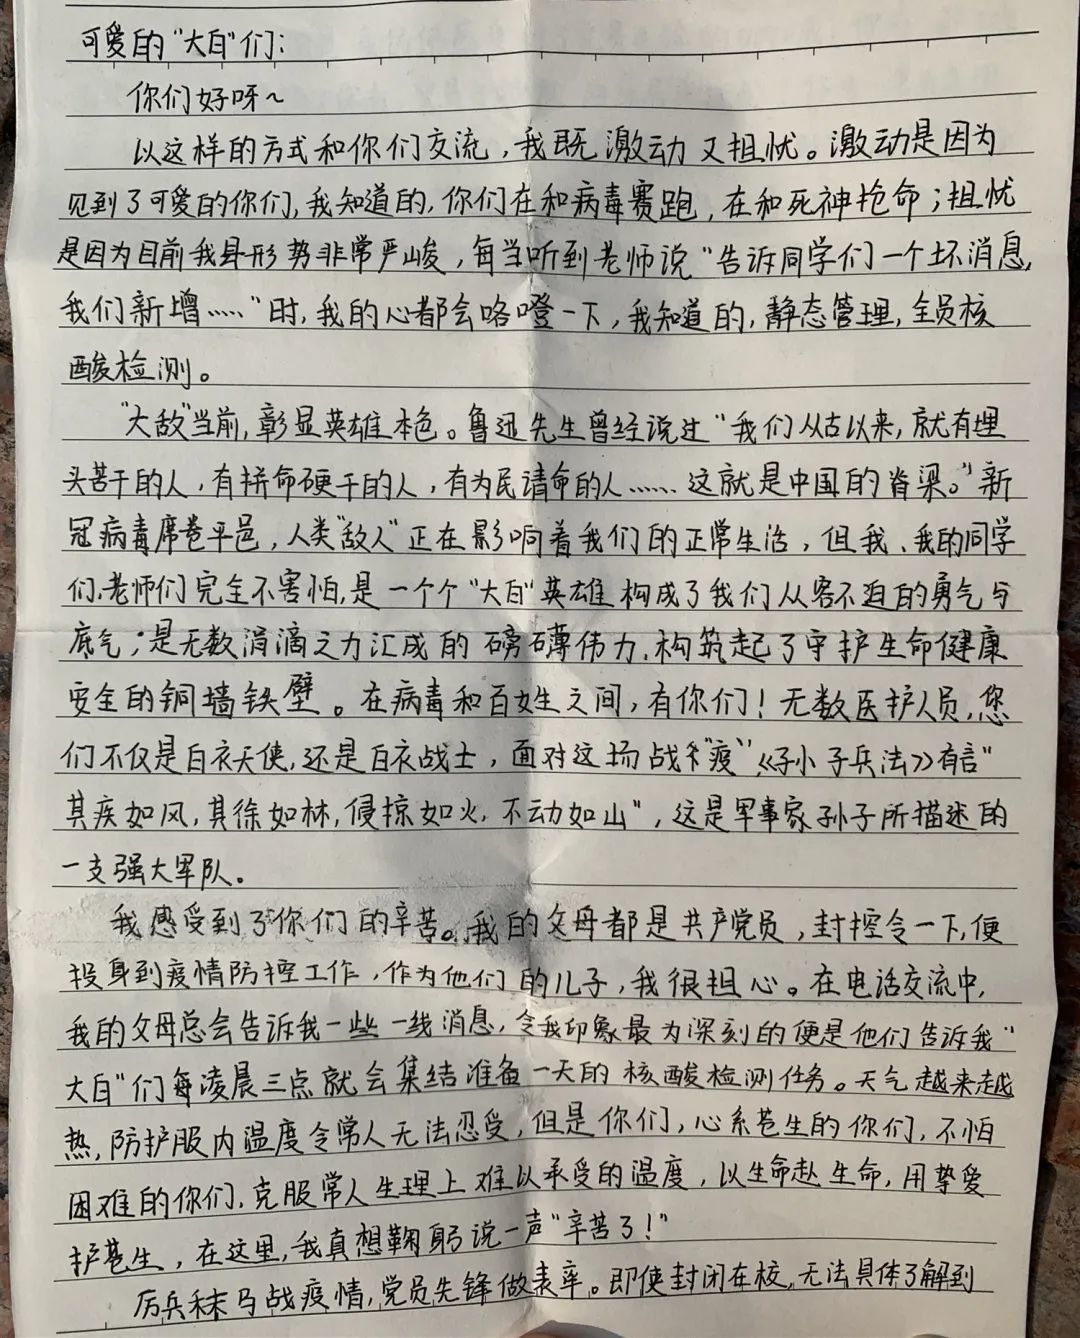 可爱的“大白”们：
你们好呀~
以这样的方式和你们交流，我既激动又担忧。激动是因为
见到了可爱的你们，我知道的，你们在和病毒赛跑，在和死神抢命；担忧
是因为目前我县形势非常严峻，每当听到老师说“告诉同学们一个坏消息，
我们新增……”时，我的心都会咯噔一下，我知道的，静态管理，全员核
酸检测。
“大敌”当前，彰显英雄本色。鲁迅先生曾经说过“我们从古以来，就有埋
头苦干的人，有拼命硬干的人，有为民请命的人……这就是中国的脊梁。”新
冠病毒席卷平邑，人类“敌人”正在影响着我们的正常生活，但我、我的同学
们、老师们完全不害怕，是一个个“大白”英雄构成了我们从容不迫的勇气与
底气；是无数涓滴之力汇成的磅礴伟力，构筑起了守护生命健康
安全的铜墙铁壁。在病毒和百姓之间，有你们！无数医护人员，您
们不仅是白衣天使，还是白衣战士，面对这场战“疫”《孙子兵法》有言“
其疾如风，其徐如林，侵掠如火，不动如山”，这是军事家孙子所描述的
一支强大军队。
我感受到了你们的辛苦。我的父母都是共产党员，封控令一下，便
投身到疫情防控工作，作为他们的儿子，我很担心。在电话交流中，
我的父母总会告诉我一些一线消息，令我印象最为深刻的便是他们告诉我“
大白”们每凌晨三点就会集结准备一天的核酸检测任务。天气越来越
热，防护服内温度令常人无法忍受，但是你们，心系苍生的你们，不怕
困难的你们，克服常人生理上难以承受的温度，以生命赴生命，用挚爱
护苍生，在这里，我真想鞠躬说一声“辛苦了！”
厉兵秣马战疫情，党员先锋做表率。即使封闭在校，无法具体了解到